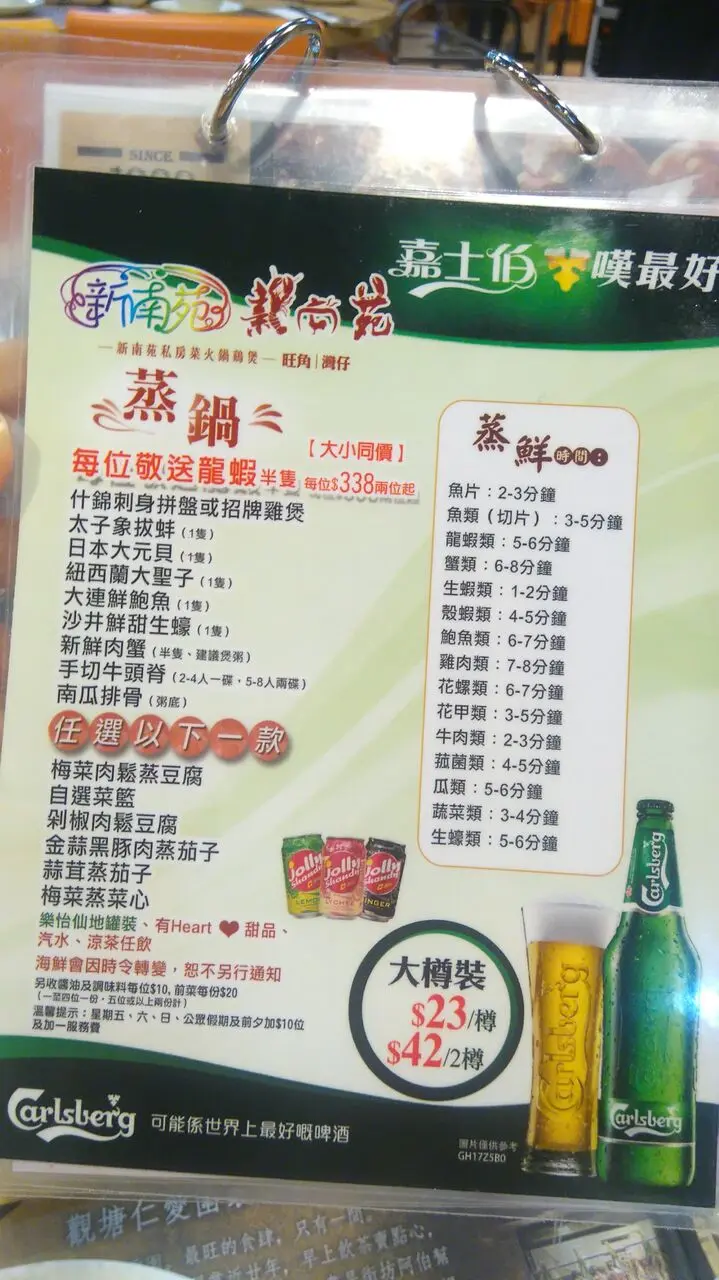 SINCE
嘉士伯 嘆最好
新南苑
苑
新南苑私房菜火鍋鷄煲
旺角|灣仔
蒸鍋
【大小同價】
每位敬送龍蝦半隻 每位$338兩位起
什錦刺身拼盤或招牌雞煲
太子象拔蚌(1隻)
日本大元貝(1隻)
紐西蘭大聖子(1隻)
大連鮮鮑魚(1隻)
沙井鮮甜生蠔(1隻)
新鮮肉蟹(半隻、建議煲粥)
手切牛頸脊(2-4人一碟,5-8人兩碟)
南瓜排骨(粥底)
任選以下一款
梅菜肉鬆蒸豆腐
自選菜籃
剁椒肉鬆豆腐
金蒜黑豚肉蒸茄子
蒜茸蒸茄子
梅菜蒸菜心
樂怡仙地罐裝、有Heart ♥ 甜品、
汽水、涼茶任飲
海鮮會因時令轉變,恕不另行通知
另收醬油及調味料每位$10,前菜每份$20
(一至四位一份,五位或以上兩份計)
溫馨提示:星期五、六、日、公眾假期及前夕加$10位
及加一服務費
蒸鮮時間:
魚片:2-3分鐘
魚類(切片):3-5分鐘
龍蝦類:5-6分鐘
蟹類:6-8分鐘
生蝦類:1-2分鐘
殼蝦類:4-5分鐘
鮑魚類:6-7分鐘
雞肉類:7-8分鐘
花螺類:6-7分鐘
花甲類:3-5分鐘
牛肉類:2-3分鐘
菰菌類:4-5分鐘
瓜類:5-6分鐘
蔬菜類:3-4分鐘
生蠔類:5-6分鐘
Jolly Shandy LEMON
Jolly Shandy LYCHEE
Jolly Shandy GINGER
大樽裝
$23/樽
$42/2樽
Carlsberg
Carlsberg
Carlsberg
Carlsberg 可能係世界上最好嘅啤酒
圖片僅供參考
GH17Z5B0
觀塘仁愛
最旺的食肆,只有一間
廿年,早上飲茶賣點心,
街坊阿伯幫